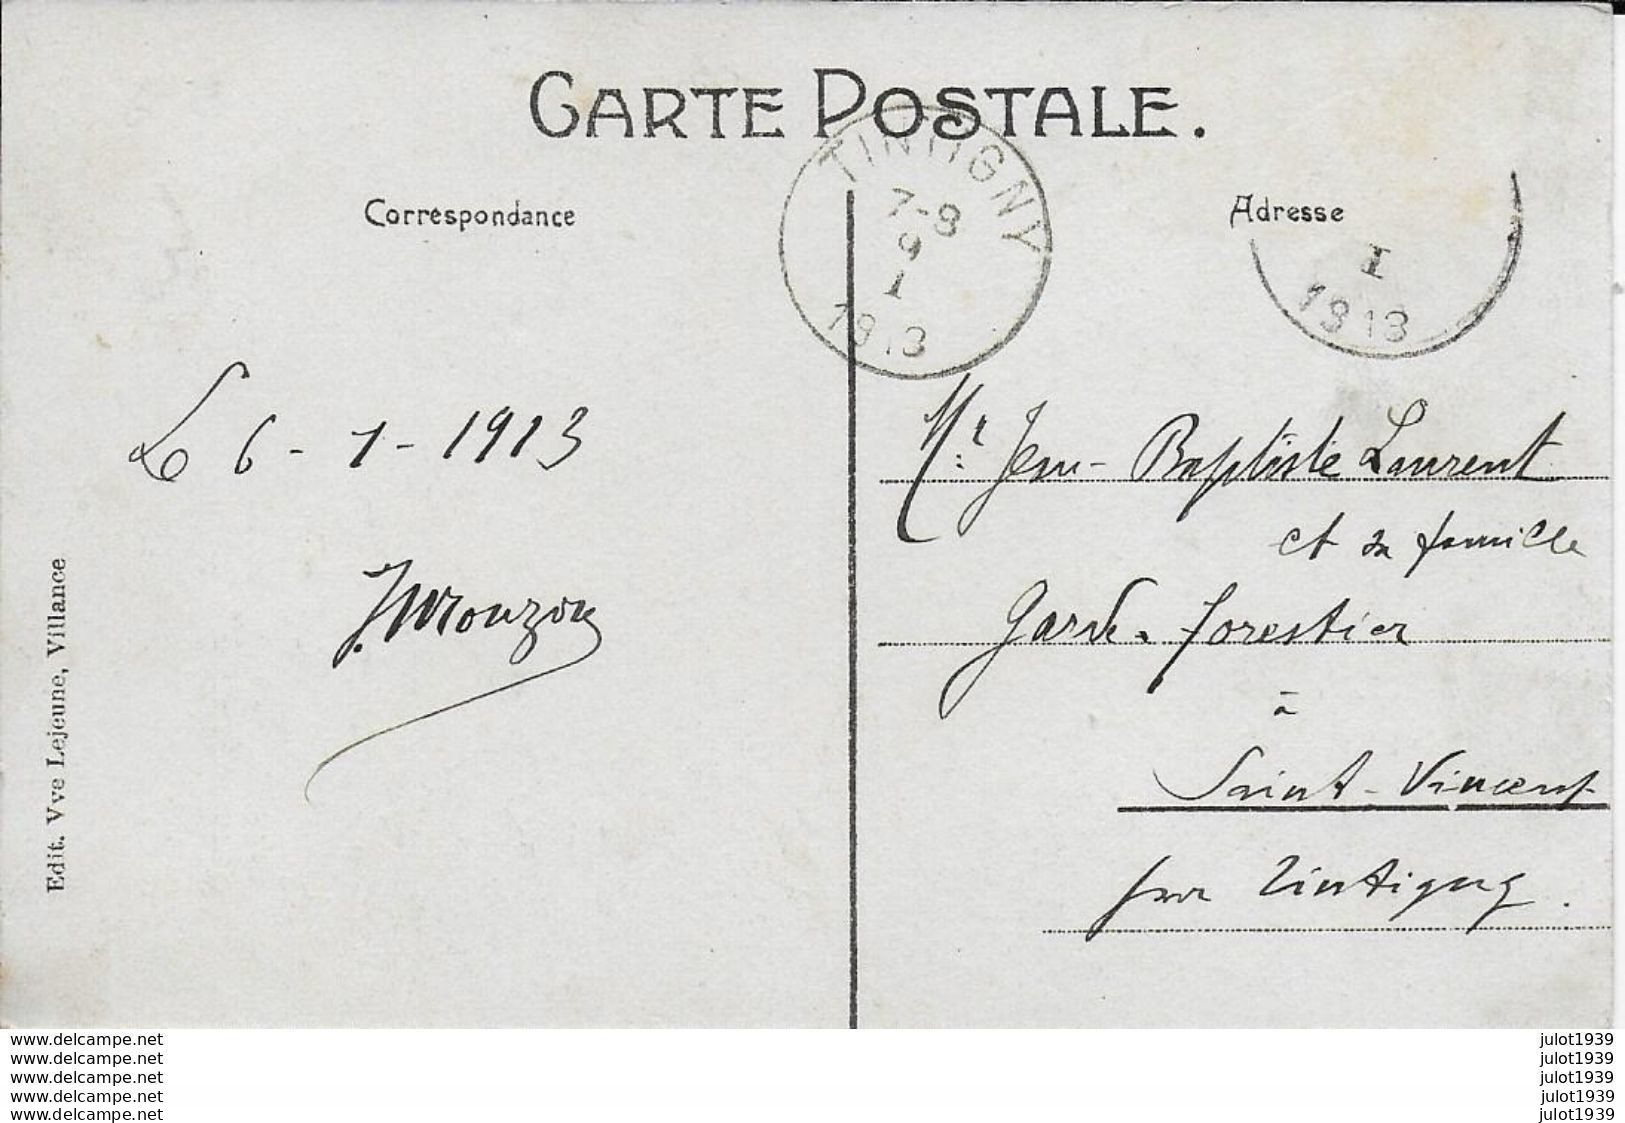 CARTE POSTALE.
Correspondance
Adresse
TINTIGNY
7-8
9
I
1913
I
1913
Le 6 - 1 - 1913
Mr Jean-Baptiste Laurent
et sa famille
Garde-forestier
à
Saint-Vincent
par Tintigny.
Edit. Vve Lejeune, Villance
www.delcampe.net
www.delcampe.net
www.delcampe.net
www.delcampe.net
www.delcampe.net
julot1939
julot1939
julot1939
julot1939
julot1939